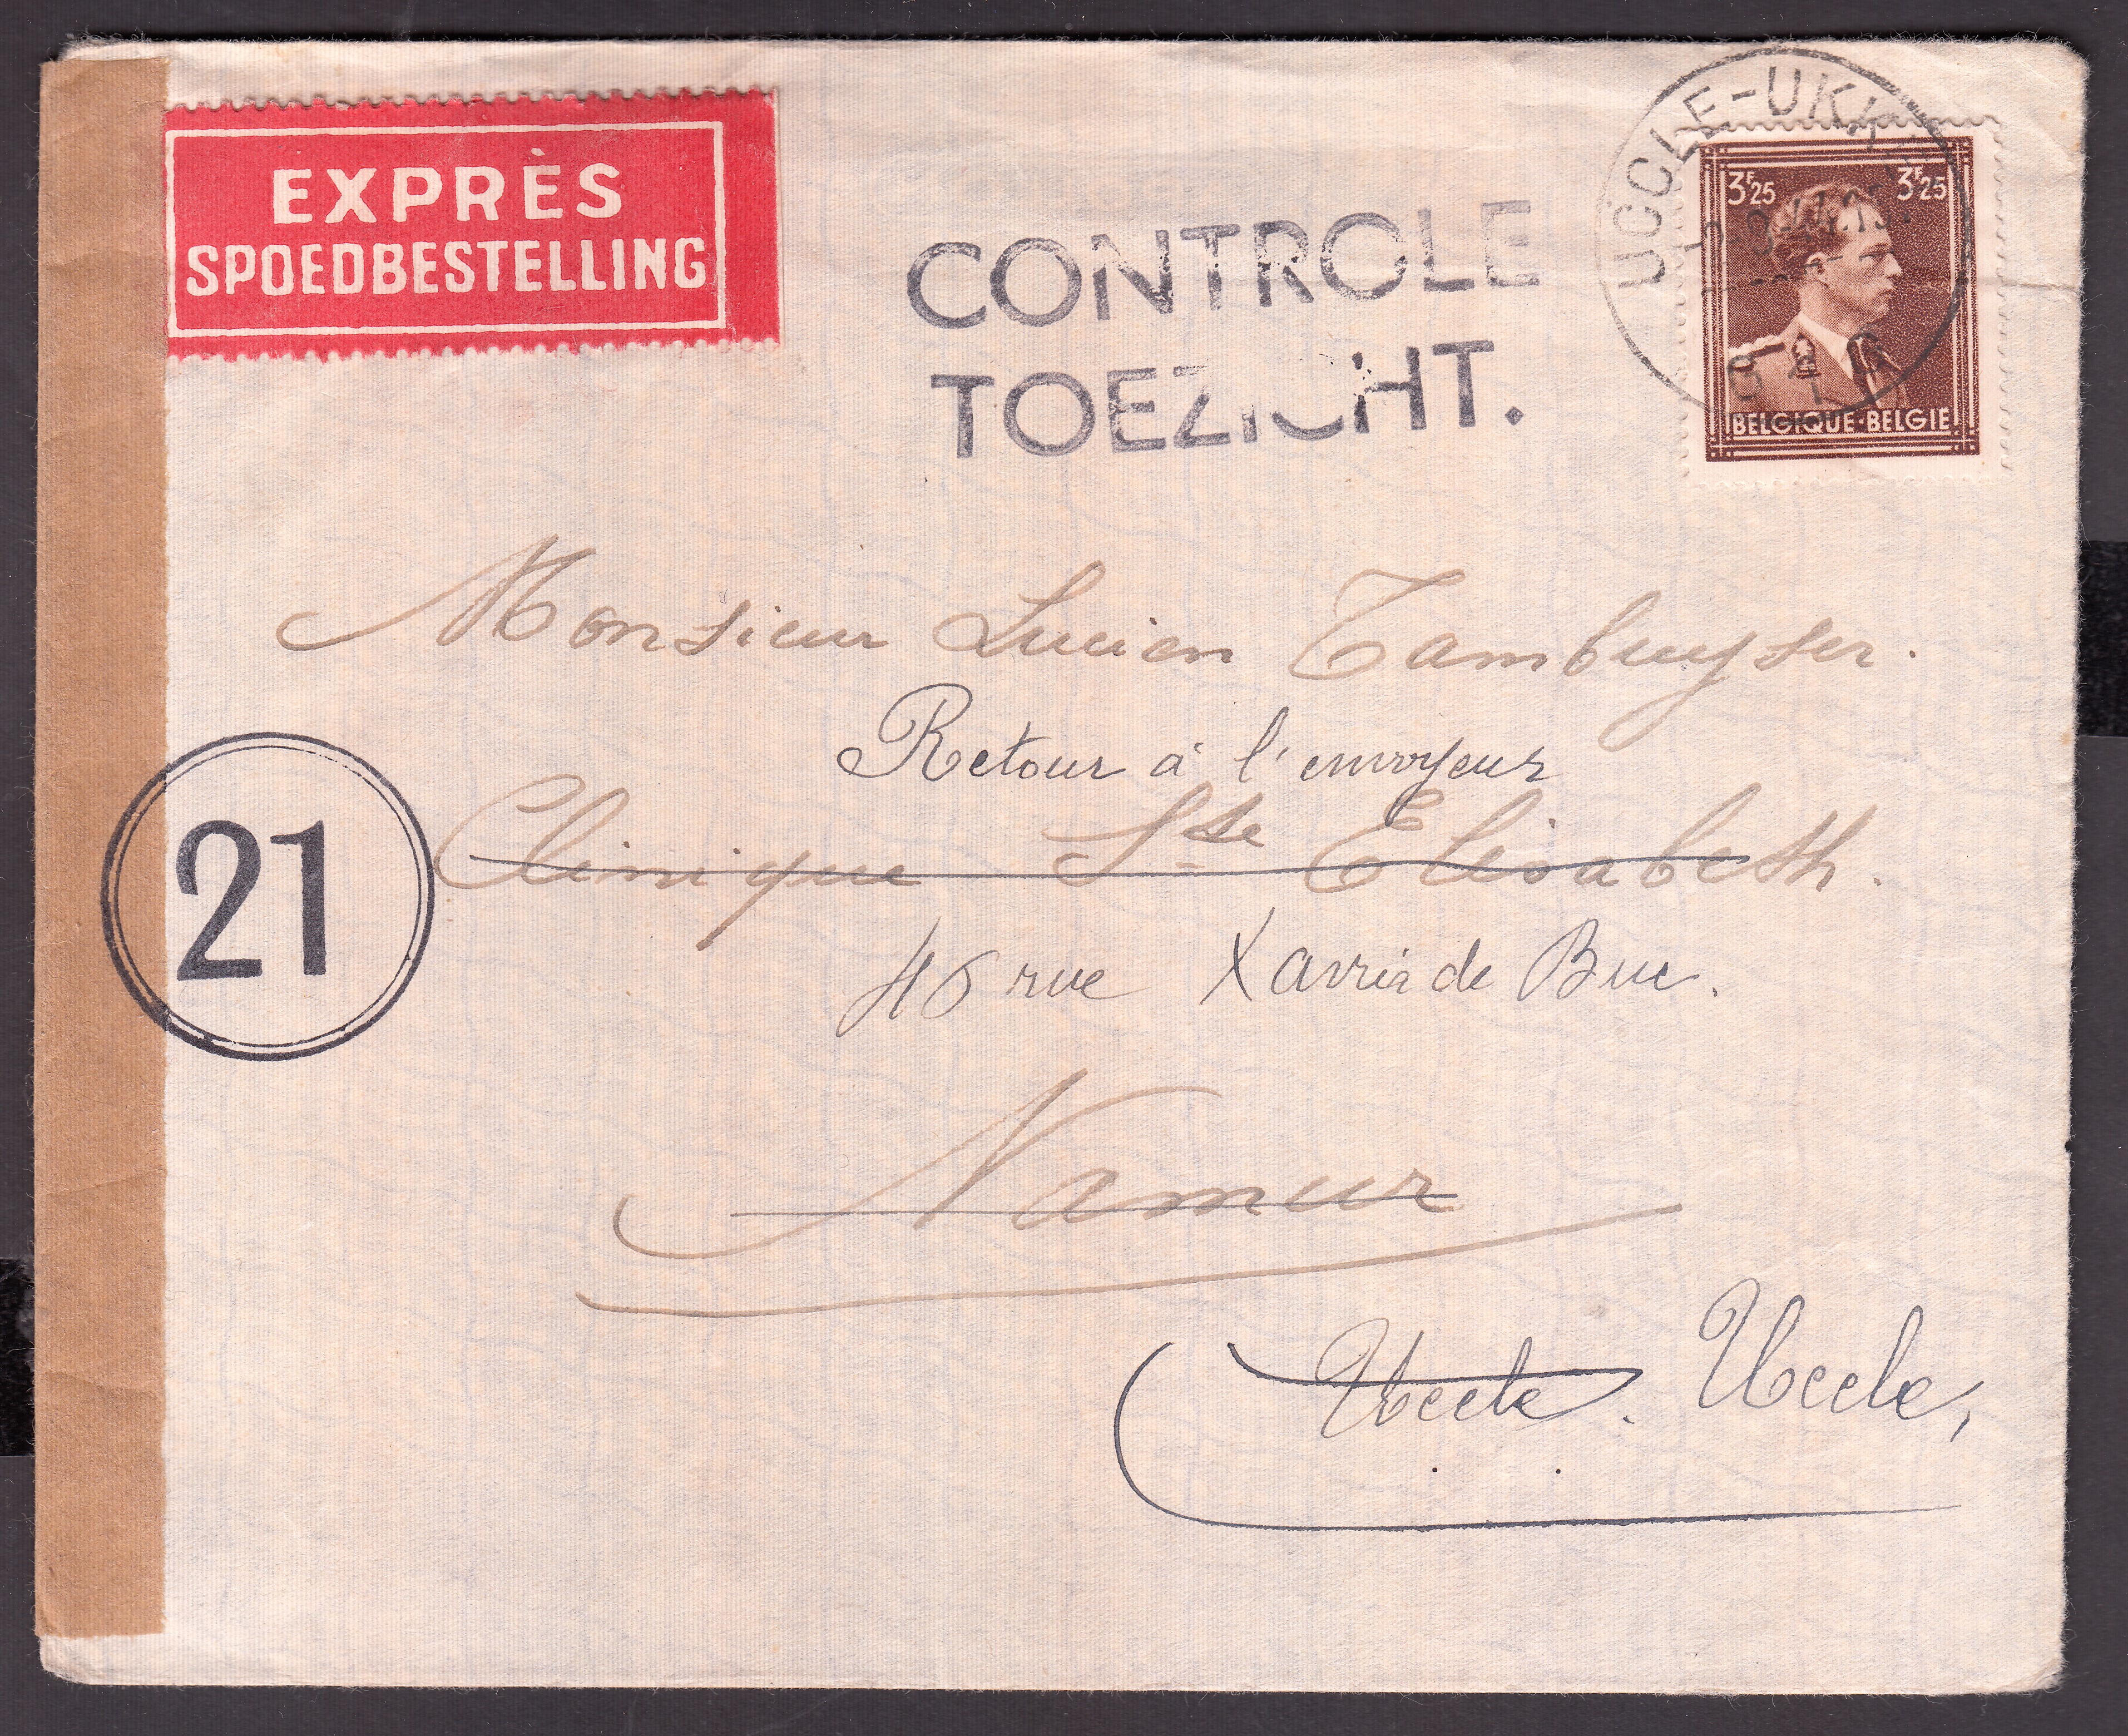 EXPRÈS
SPOEDBESTELLING
CONTROLE
TOEZICHT.
UCCLE-UKK
3F25 3F25
BELGIQUE-BELGIE
Monsieur Lucien Tambuyser.
Retour à l'envoyeur
21
Clinique Ste Elisabeth.
46 rue Xavier de Bue.
Namur
Uccle. Uccle,